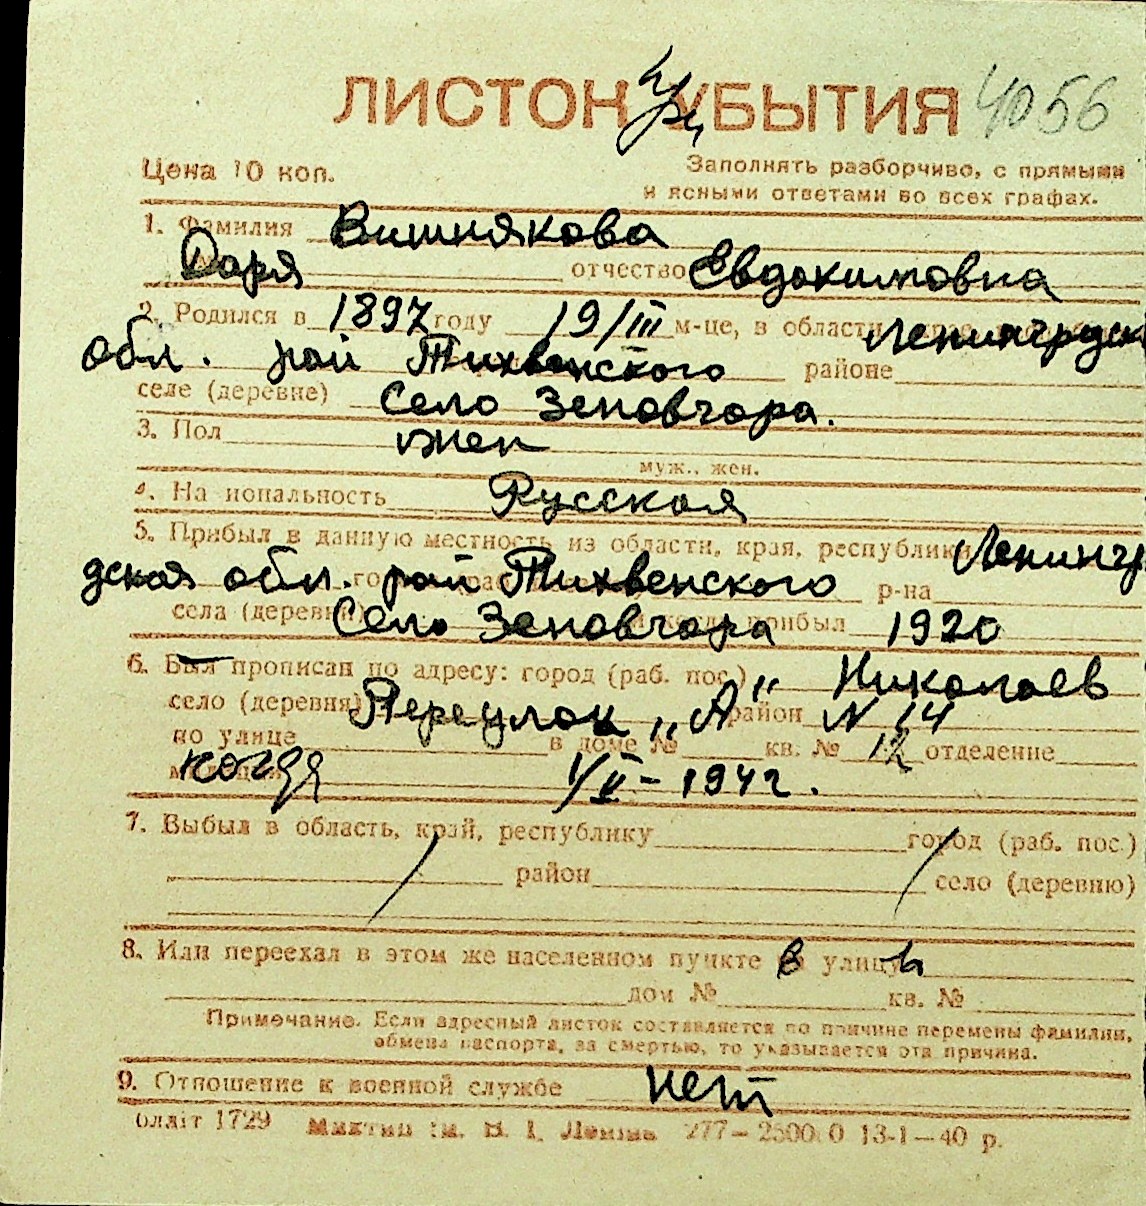 ЛИСТОК УБЫТИЯ 4056
Цена 10 коп.
Заполнять разборчиво, с прямыми
и ясными ответами во всех графах.
1. Фамилия Вишнякова
Даря отчество Евдокимовна
2. Родился в 1897 году 19/III м-це, в области Ленинградск
обл. рай Тихвенского районе
селе (деревне) Село Зеновгора.
3. Пол жен
муж., жен.
4. Национальность Русская
5. Прибыл в данную местность из области, края, республики Ленингр
дская обл. рай Тихвенского р-на
села (деревни) Село Зеновгора прибыл 1920
6. Был прописан по адресу: город (раб. пос.) Николаев
село (деревня) Переулок "А" район N 14
по улице в доме № кв. № 12 отделение
когда 1/V - 194 г.
7. Выбыл в область, край, республику город (раб. пос.)
район село (деревню)
8. Или переехал в этом же населенном пункте в улицу
дом № кв. №
Примечание. Если адресный листок составляется по причине перемены фамилии,
обмена паспорта, за смертью, то указывается эта причина.
9. Отношение к военной службе нет
1729 277—2500 0 13-1—40 р.